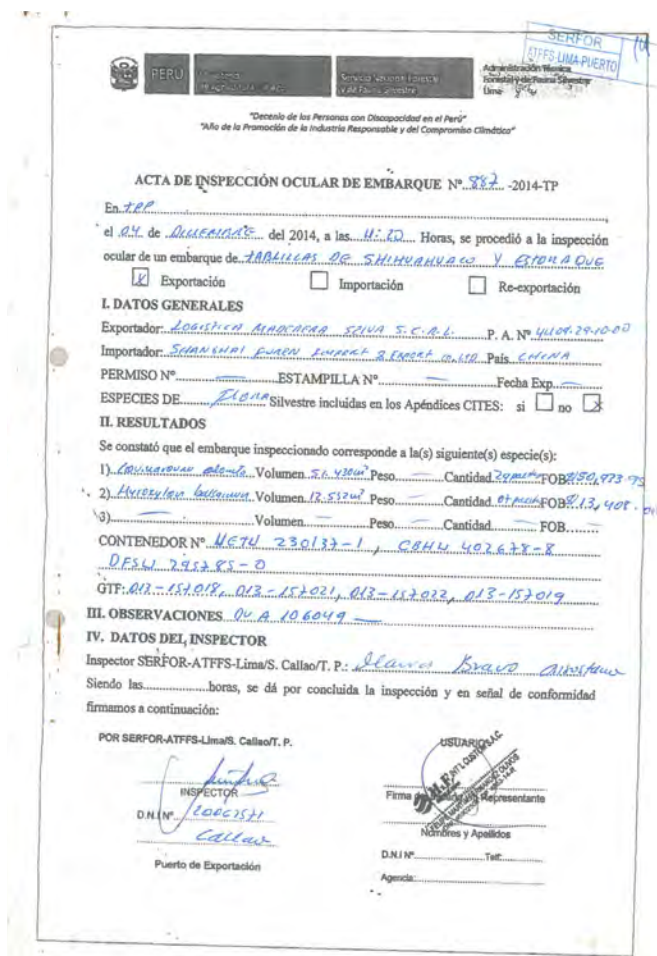 SERFOR
ATFFS-LIMA-PUERTO
PERÚ
Servicio Nacional Forestal
y de Fauna Silvestre
Administración Técnica
Forestal y de Fauna Silvestre
Lima
"Decenio de las Personas con Discapacidad en el Perú"
"Año de la Promoción de la Industria Responsable y del Compromiso Climático"
ACTA DE INSPECCIÓN OCULAR DE EMBARQUE Nº 887 -2014-TP
En TPP
el 04 de DICIEMBRE del 2014, a las 11:20 Horas, se procedió a la inspección
ocular de un embarque de TABLILLAS DE SHIHUAHUACO Y ESTORAQUE
X Exportación Importación Re-exportación
I. DATOS GENERALES
Exportador: LOGISTICA MADERERA SELVA S.C.R.L. P. A. Nº 4409.29-10-00
Importador: SHANGHAI FUREN IMPORT & EXPORT CO. LTD País CHINA
PERMISO Nº — ESTAMPILLA Nº — Fecha Exp. —
ESPECIES DE FLORA Silvestre incluidas en los Apéndices CITES: si no X
II. RESULTADOS
Se constató que el embarque inspeccionado corresponde a la(s) siguiente(s) especie(s):
1) Volumen 51.430m³ Peso — Cantidad 29 FOB $150,973
2) Volumen 12.552m³ Peso — Cantidad 07 FOB $13,408
3) — Volumen — Peso — Cantidad — FOB
CONTENEDOR Nº UETU 230137-1, CBHU 402678-8
DFSU 295785-0
GTF: 013-157018, 013-157021, 013-157022, 013-157019
III. OBSERVACIONES DU A 106049 —
IV. DATOS DEL INSPECTOR
Inspector SERFOR-ATFFS-Lima/S. Callao/T. P.: Bravo
Siendo las horas, se dá por concluida la inspección y en señal de conformidad
firmamos a continuación:
POR SERFOR-ATFFS-Lima/S. Callao/T. P.
USUARIO
INSPECTOR
Firma Representante
D.N.I Nº
Nombres y Apellidos
Callao
Puerto de Exportación
D.N.I Nº Telf:
Agencia: